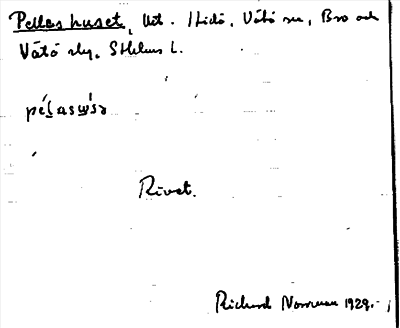 Pellas huset, Utt. Håtö, Vätö sn, Bro och
Vätö slg, Sthlms l.
pélaswìsə
Rivet.
Richard Norrman 1929.